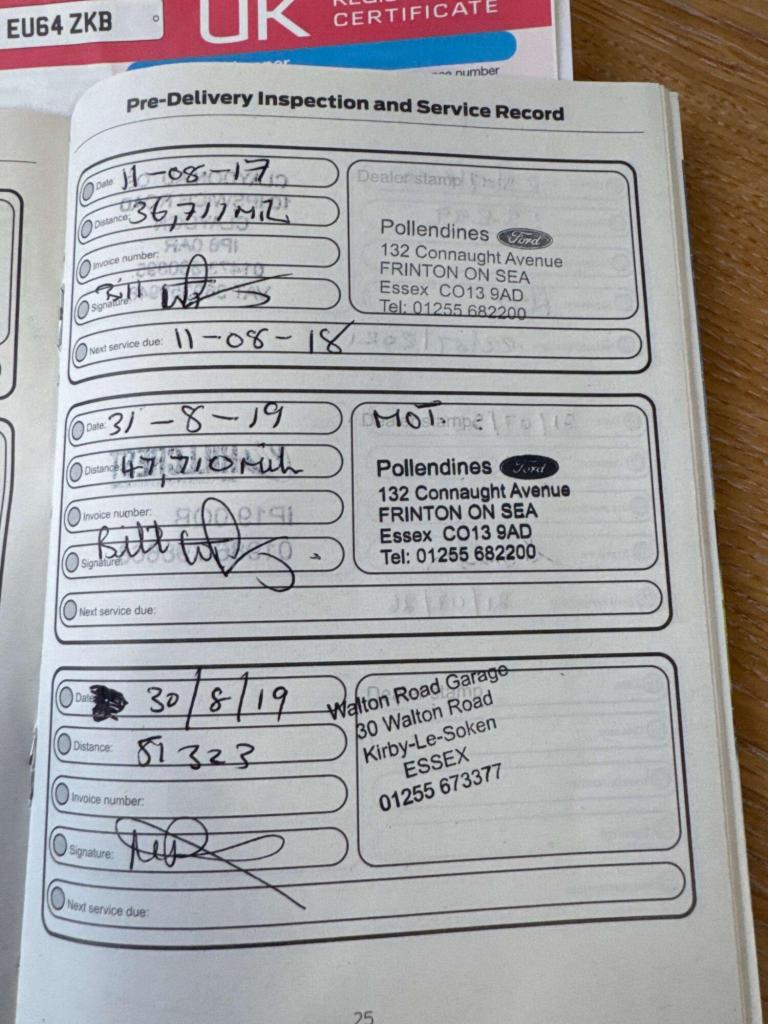 EU64 ZKB
UK
CERTIFICATE
number
Pre-Delivery Inspection and Service Record
Date: 11-08-17
Distance: 36,717 MIL
Invoice number:
Signature: Bill
Next service due: 11-08-18
Dealer stamp
Pollendines Ford
132 Connaught Avenue
FRINTON ON SEA
Essex CO13 9AD
Tel: 01255 682200
Date: 31-8-19
Distance: 47,710 Mile
Invoice number:
Signature: Bill
Next service due:
MOT.
Dealer stamp
Pollendines Ford
132 Connaught Avenue
FRINTON ON SEA
Essex CO13 9AD
Tel: 01255 682200
Date 30/8/19
Distance: 51323
Invoice number:
Signature:
Next service due:
Walton Road Garage
30 Walton Road
Kirby-Le-Soken
ESSEX
01255 673377
25